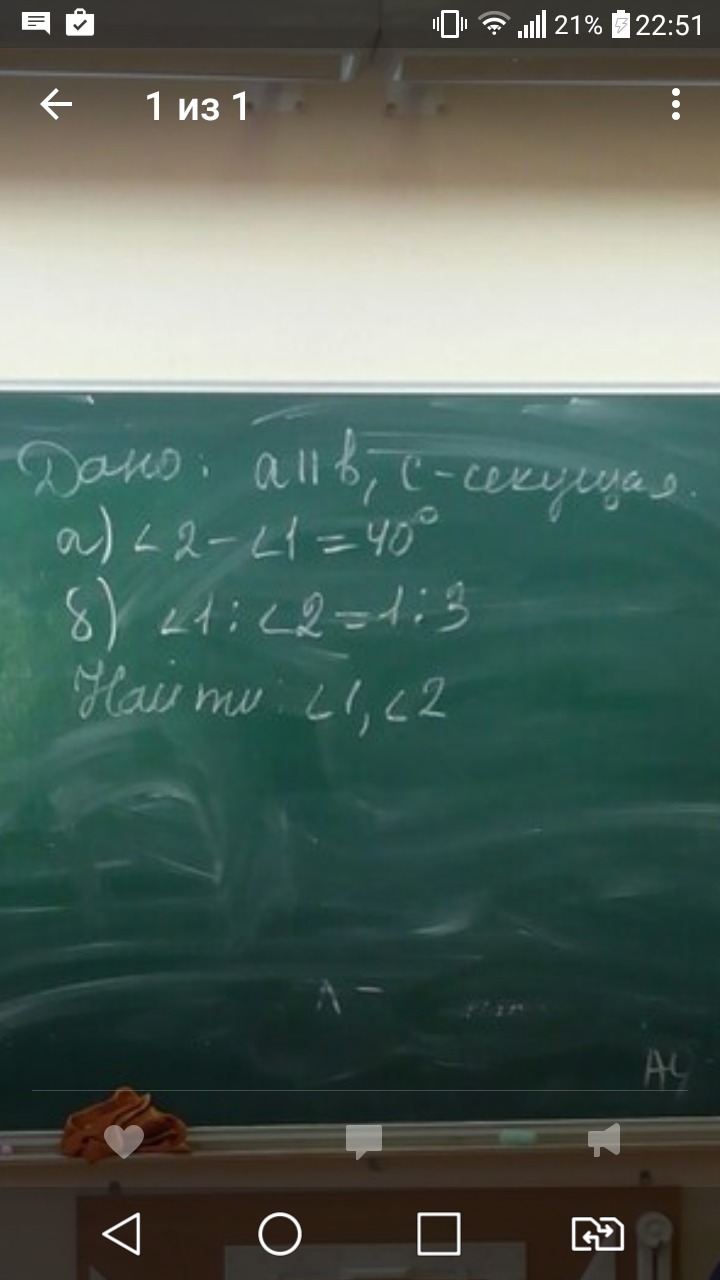 21% 22:51
1 из 1
Дано: a||b, c-секущая.
а) ∠2-∠1=40°
б) ∠1:∠2=1:3
Найти: ∠1, ∠2